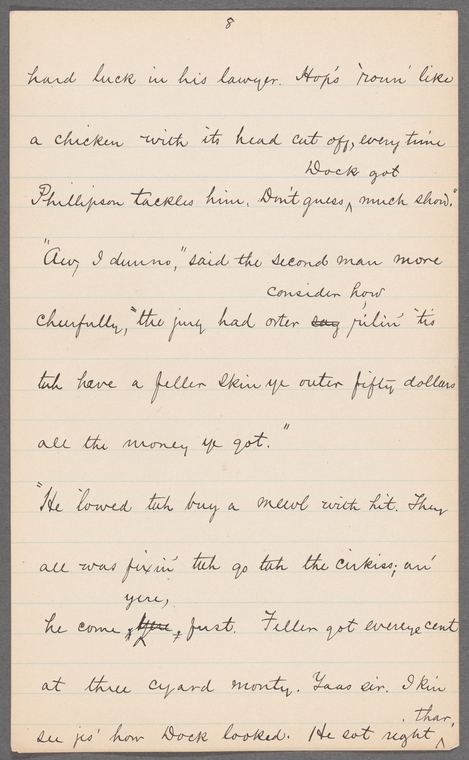 8
hard luck in his lawyer. Hop's 'roun' like
a chicken with its head cut off, every time
Dock got
Phillipson tackles him. Don't guess ^ much show."
"Aw, I dunno," said the second man more
consider how
cheerfully, "the jury had orter say rilin' 'tis
tuh have a feller skin ye outer fifty dollars
all the money ye got."
"He 'lowed tuh buy a mewl with hit. They
all was fixin' tuh go tuh the cirkiss; an'
yere,
he come ^ fust. Feller got everye cent
at three cyard monty. Yaas sir. I kin
thar,
see jis' how Dock looked. He sot right ^